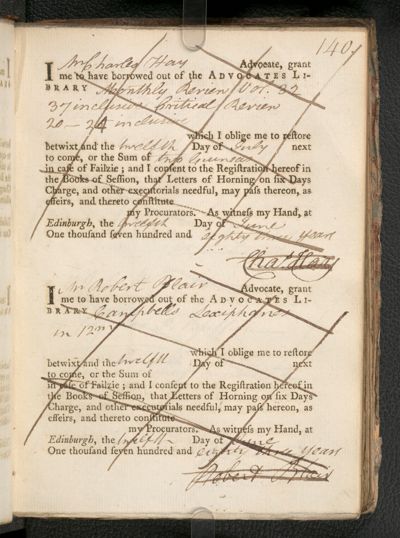 140
I Mr Charles Hay Advocate, grant
me to have borrowed out of the ADVOCATES LI-
BRARY Monthly Review Vol. 32
37 inclusive Critical Review
20 — 24 inclusive
which I oblige me to reſtore
betwixt and the twelfth Day of July next
to come, or the Sum of two Guineas
in caſe of Failzie; and I conſent to the Regiſtration hereof in
the Books of Seſſion, that Letters of Horning on ſix Days
Charge, and other executorials needful, may paſs hereon, as
effeirs, and thereto conſtitute
my Procurators. As witneſs my Hand, at
Edinburgh, the twelfth Day of June
One thouſand ſeven hundred and eighty three years
Chas. Hay
I Mr Robert Blair Advocate, grant
me to have borrowed out of the ADVOCATES LI-
BRARY Campbells Lexiphanes
in 12mo
which I oblige me to reſtore
betwixt and the twelfth Day of next
to come, or the Sum of
in caſe of Failzie; and I conſent to the Regiſtration hereof in
the Books of Seſſion, that Letters of Horning on ſix Days
Charge, and other executorials needful, may paſs hereon, as
effeirs, and thereto conſtitute
my Procurators. As witneſs my Hand, at
Edinburgh, the twelfth Day of June
One thouſand ſeven hundred and eighty three years
Robert Blair